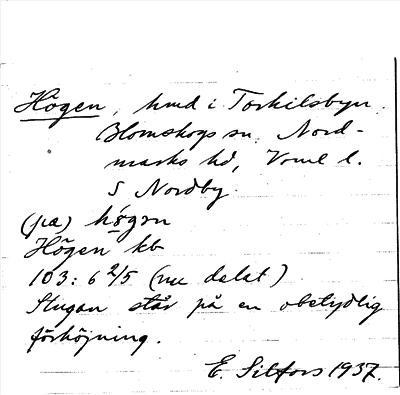 Högen, hmd i Torkilsbyn
Blomskogs sn. Nord-
marks hd, Vrml l.
S Nordby
(pa) högɘn
Högen kb
103: 6 2/5 (nu delat)
Stugan står på en obetydlig
förhöjning.
E. Silfors 1937.